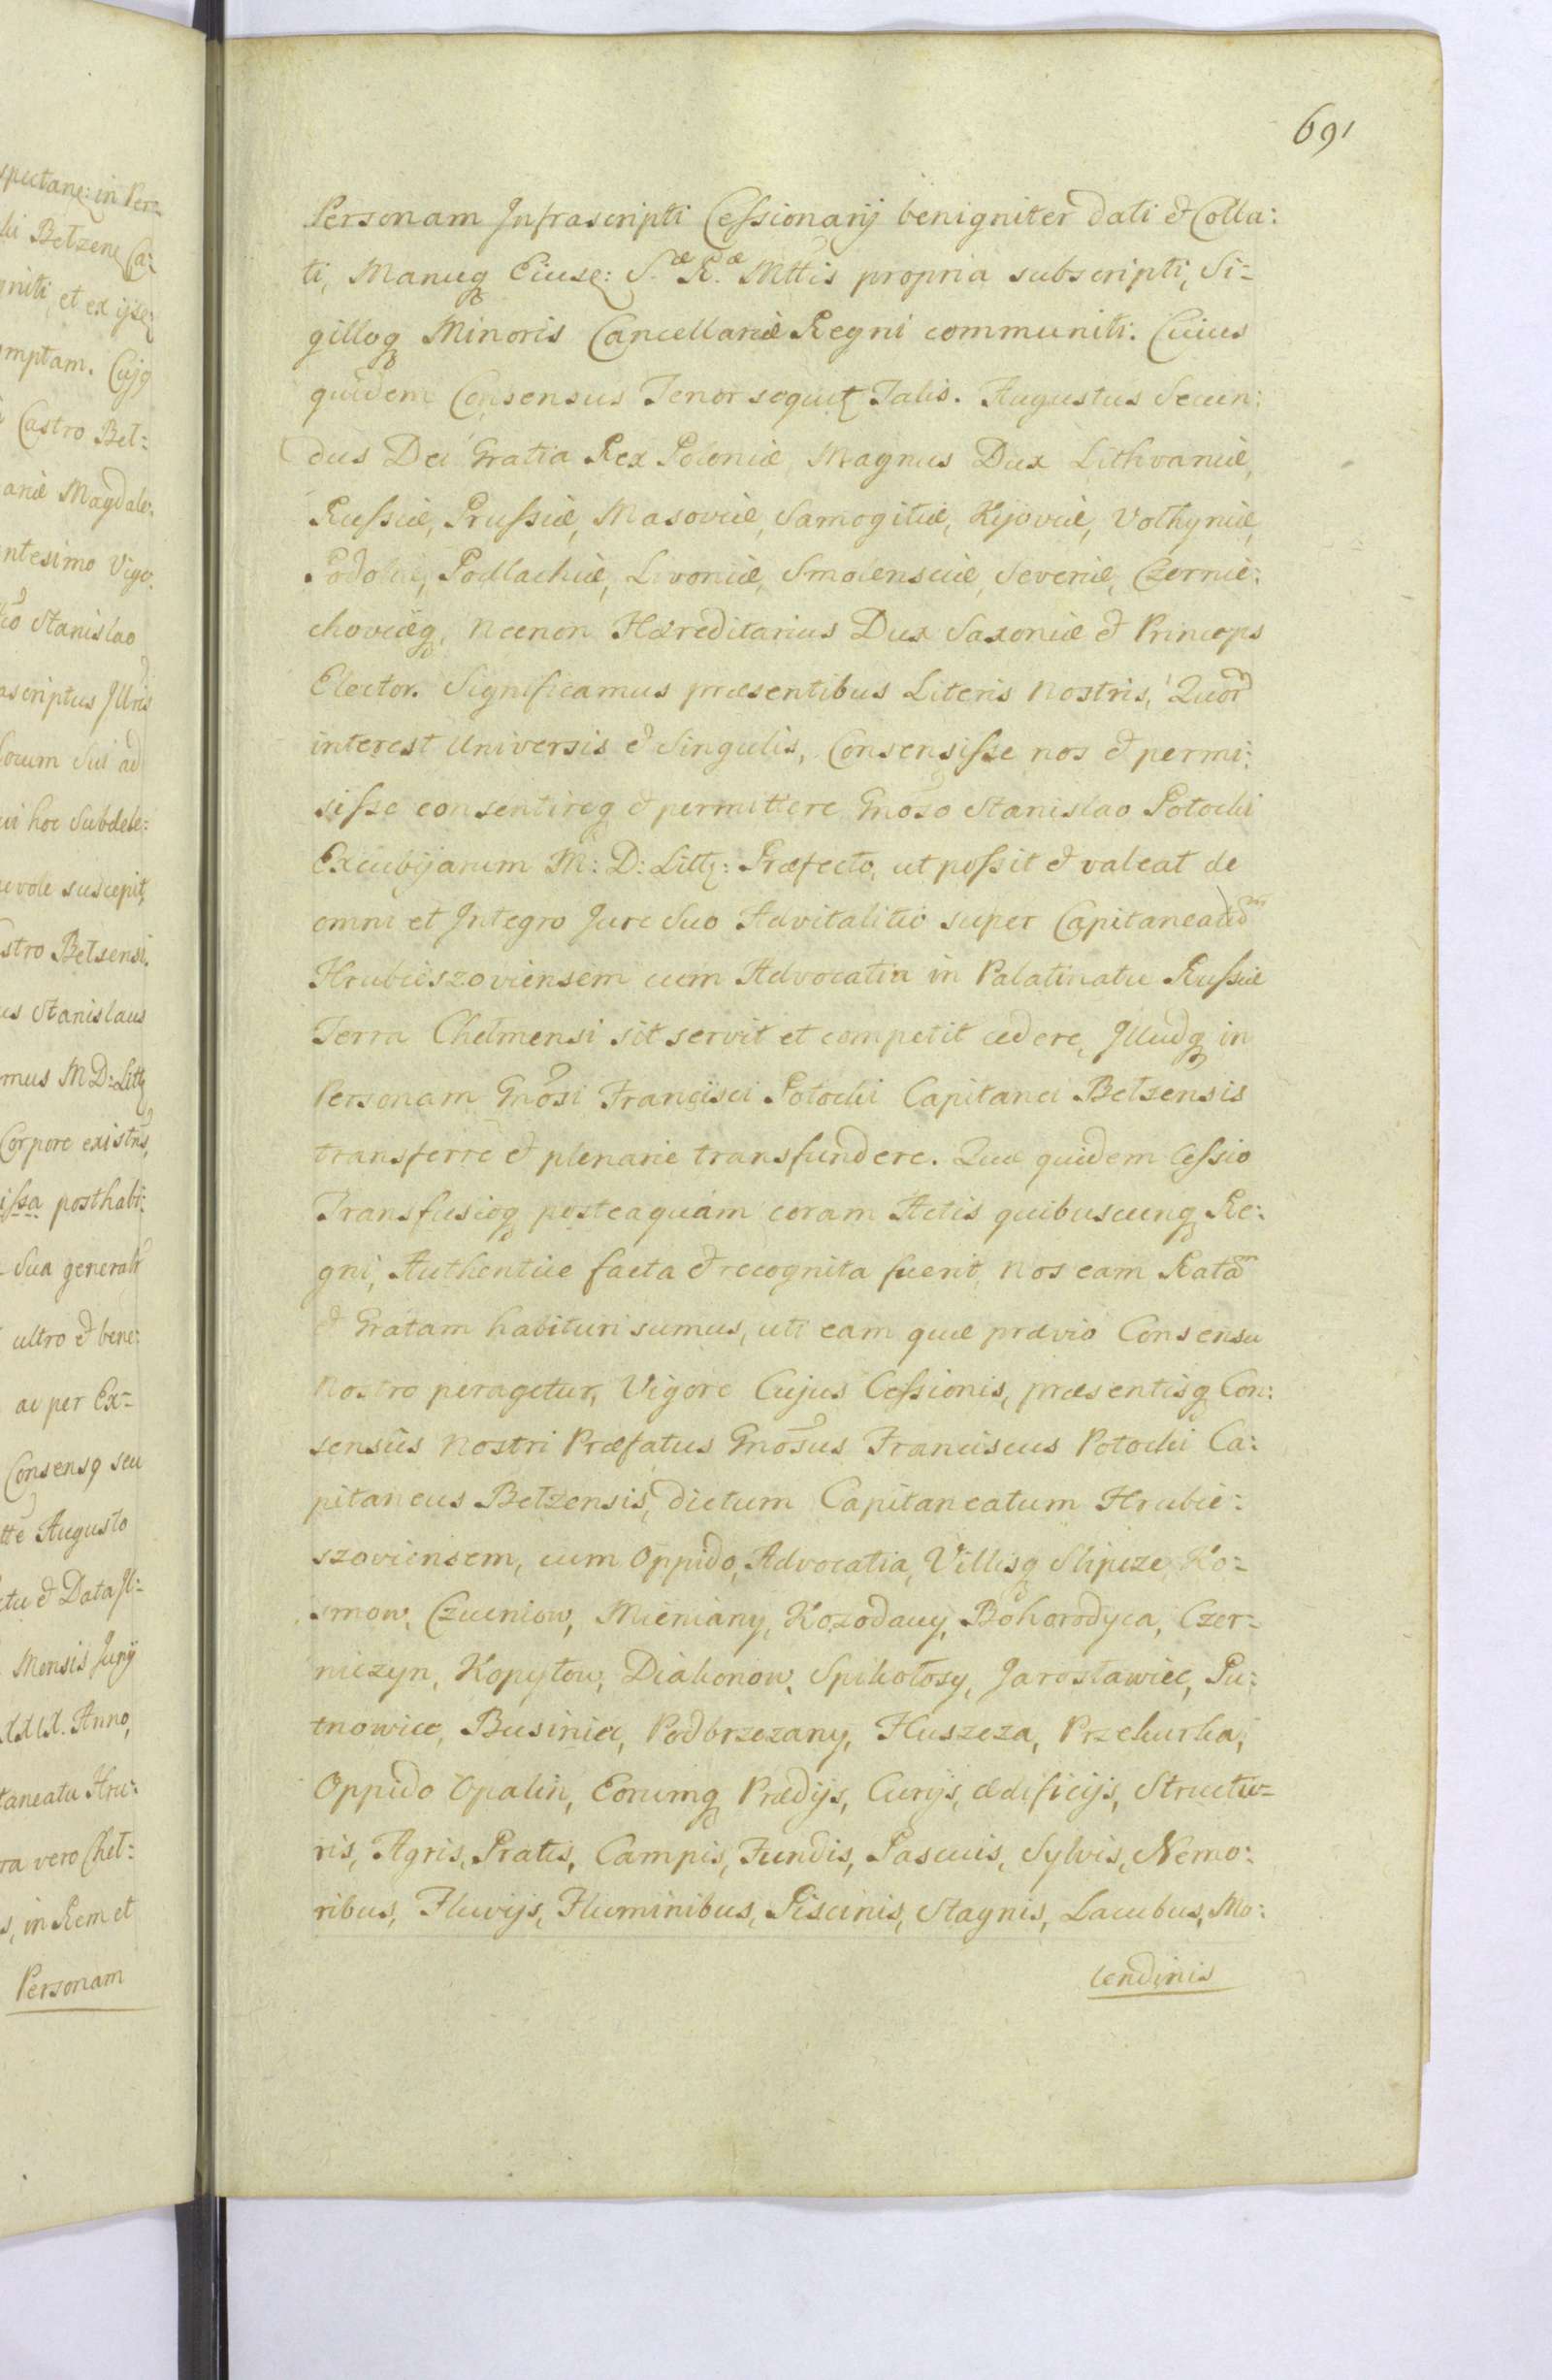 spectane: in Per=
ki Betzene Ca:
gniti, et ex ijse
mptam. Cujq
Castro Bel=
anæ Magdale:
ntesimo Vige:
Stanislao
ascriptus Jllris
Locum Sui ad
ui hoc Subdele:
evole suscepit,
stro Belsensi.
us Stanislaus
mus M D: Litt
Corpore existns,
issa posthabi:
Sua generalr
ultro & bene:
ac per Ex=
Consensq seu
tte Augusto
tu & Data Jl=
Mensis Junij
XXIX. Anno,
taneatu Hru:
ra vero Chel=
s, in Rem et
Personam
691
Personam Jnfrascripti Cessionarij benigniter dati & Colla:
ti, Manuq Eiuse: S.æ R.æ Mttis propria subscripti, Si=
gilloq Minoris Cancellariæ Regni communiti. Cuius
quidem Consensus Tenor sequit Talis. Augustus Secun:
dus Dei Gratia Rex Poloniæ, Magnus Dux Lithvaniæ,
Russiæ, Prussiæ, Masoviæ, Samogitiæ, Kijoviæ, Volhyniæ,
Podoliæ, Podlachiæ, Livoniæ, Smolensciæ, Severiæ, Czernie:
choviæq, Necnon Hæreditarius Dux Saxoniæ & Princeps
Elector. Significamus præsentibus Literis Nostris, Quor
interest Universis & Singulis, Consensisse nos & permi:
sisse consentireq & permittere Gnoso Stanislao Potocki
Excubijarum M: D: Litt: Præfecto, ut possit & valeat de
omni et Jntegro Jure Suo Advitalitio super Capitaneatum
Hrubieszoviensem cum Advocatia in Palatinatu Russiæ
Terra Chelmensi sit servit et competit cedere, Jlludq in
Personam Gnosi Francisci Potocki Capitanei Betzensis
transferre & plenarie transfundere. Quæ quidem Cessio
Transfusioq posteaquam coram Actis quibuscunq Re:
gni, Authentice facta & recognita fuerit, Nos eam Ratam
& Gratam habituri sumus, uti eam quæ prævio Consensu
Nostro peragetur, Vigore Cujus Cessionis, præsentisq Con:
sensûs Nostri Præfatus Gnosus Franciscus Potocki Ca:
pitaneus Betzensis, dictum Capitaneatum Hrubie:
szoviensem, cum Oppido, Advocatia, Villisq Slipcze, Ko=
smow, Czueniow, Mieniany, Kozodawy, Bohorodyca, Czer=
niczyn, Kopyłow, Diakonow, Spikołosy, Jarosławiec, Pu:
tnowice, Businia, Podbrzezany, Huszcza, Przekurka,
Oppido Opalin, Eorumq Prædijs, Curijs, ædificijs, Structu=
ris, Agris, Pratis, Campis, Fundis, Pascuis, Sylvis, Nemo:
ribus, Fluvijs, Fluminibus, Piscinis, Stagnis, Lacubus, Mo:
lendinis